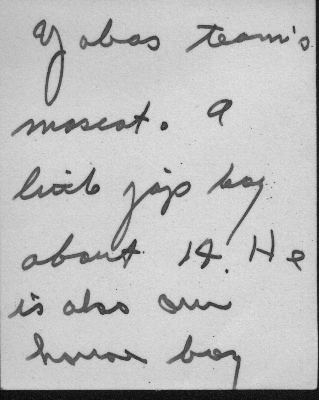 Yabas team's
mascot. A
little jap boy
about 14. He
is also our
house boy